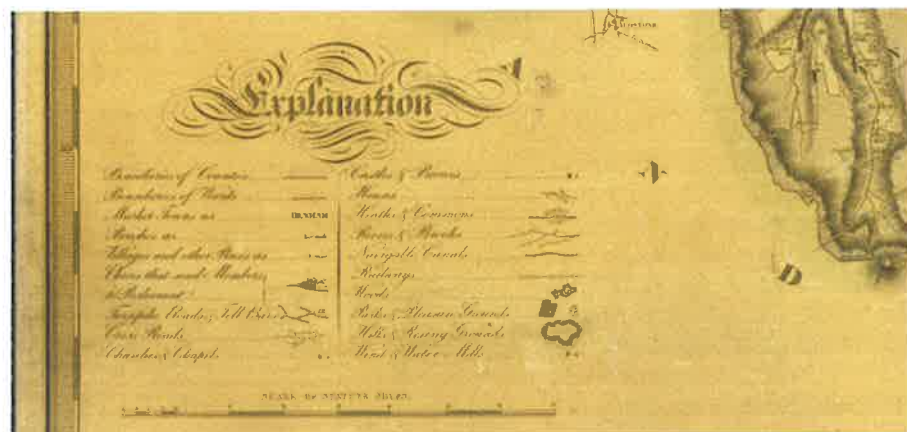 Explanation
Boundaries of Counties
Boundaries of Wards
Market Towns as
Parishes as
Villages and other Places as
Places that send Members
to Parliament
Turnpike Roads & Toll Bars
Cross Roads
Churches & Chapels
Castles & Priories
Heaths & Commons
Rivers & Brooks
Navigable Canals
Railways
Woods
Parks & Pleasure Grounds
Hills & Rising Grounds
Wind & Water Mills
SCALE OF STATUTE MILES